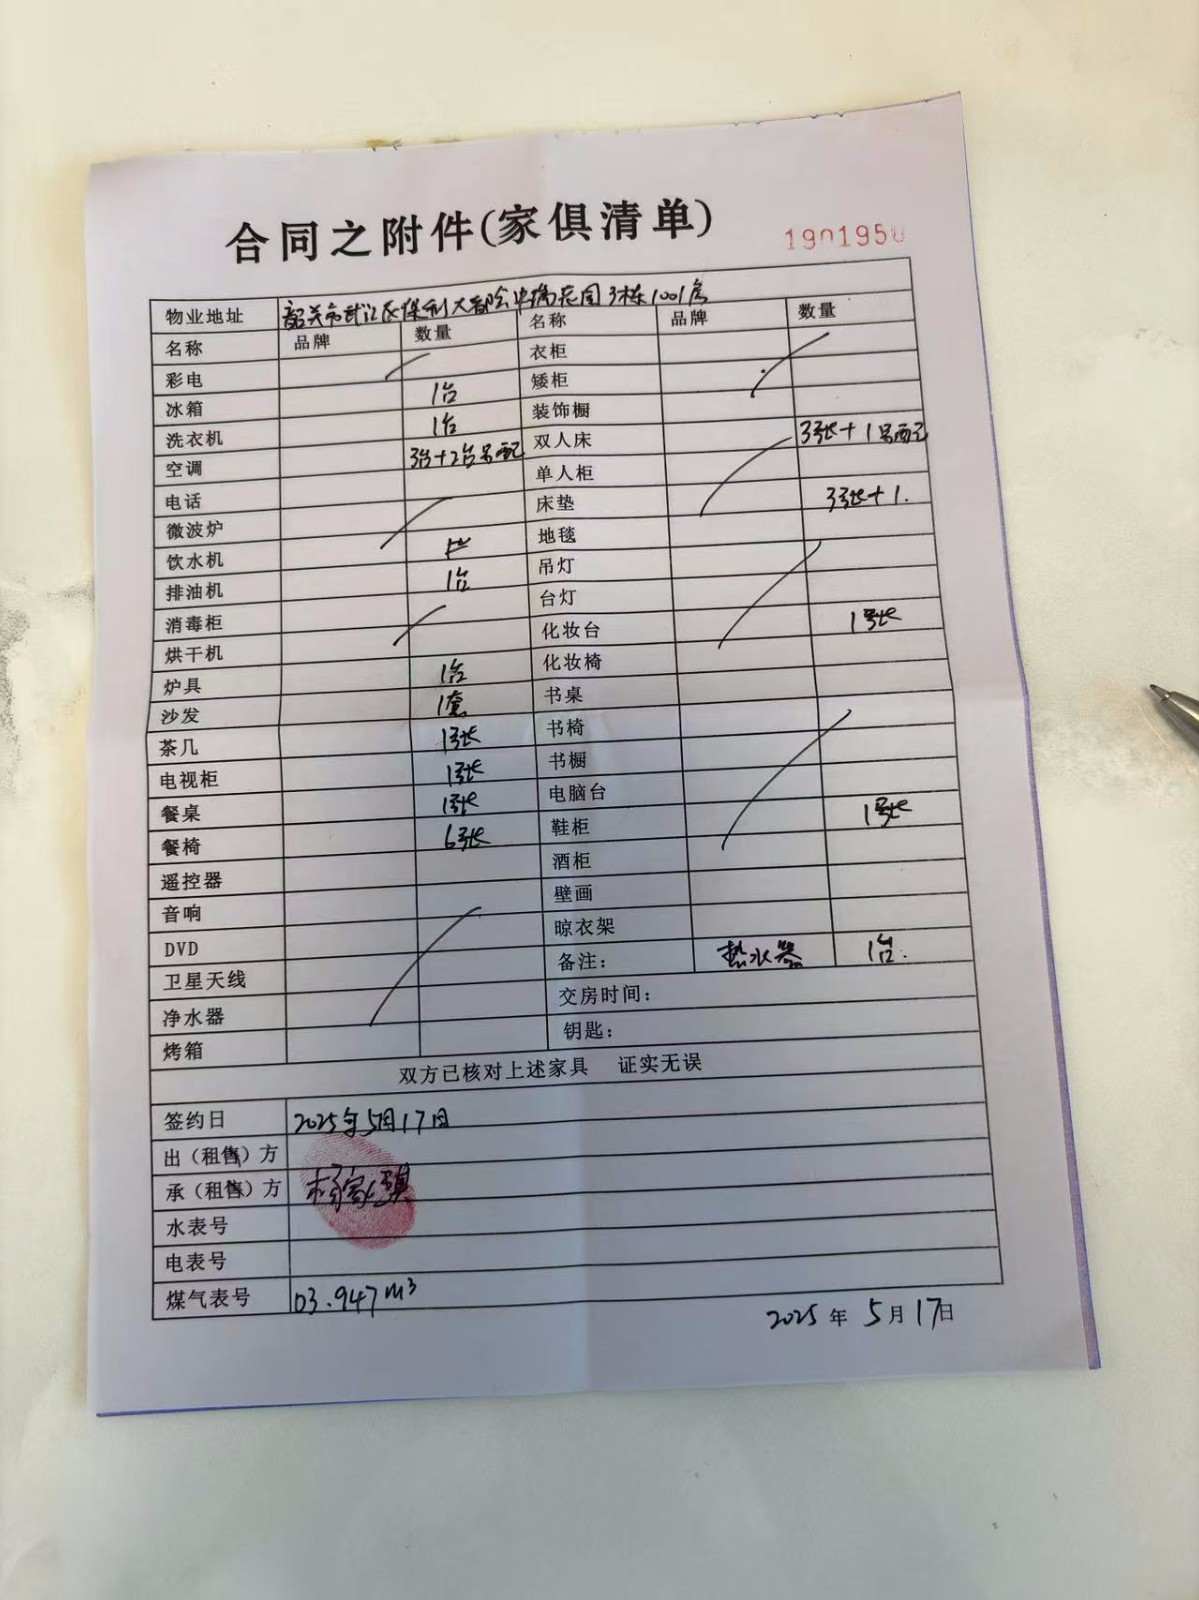 合同之附件(家俱清单)
1901950
物业地址 韶关市武江区保利大都会中 花园3栋1001房
名称 品牌 数量 名称 品牌 数量
彩电 衣柜
冰箱 1台 矮柜
洗衣机 1台 装饰橱
空调 3台+2台另配 双人床 3张+1另配
电话 单人柜
微波炉 床垫 3张+1.
饮水机 地毯
排油机 1台 吊灯
消毒柜 台灯
烘干机 化妆台 1张
炉具 1台 化妆椅
沙发 1套 书桌
茶几 1张 书椅
电视柜 1张 书橱
餐桌 1张 电脑台
餐椅 6张 鞋柜 1张
遥控器 酒柜
音响 壁画
DVD 晾衣架
卫星天线 备注： 热水器 1台.
净水器 交房时间：
烤箱 钥匙：
双方已核对上述家具 证实无误
签约日 2025年5月17日
出（租售）方
承（租售）方 杨家
水表号
电表号
煤气表号 03.947m³
2025年5月17日